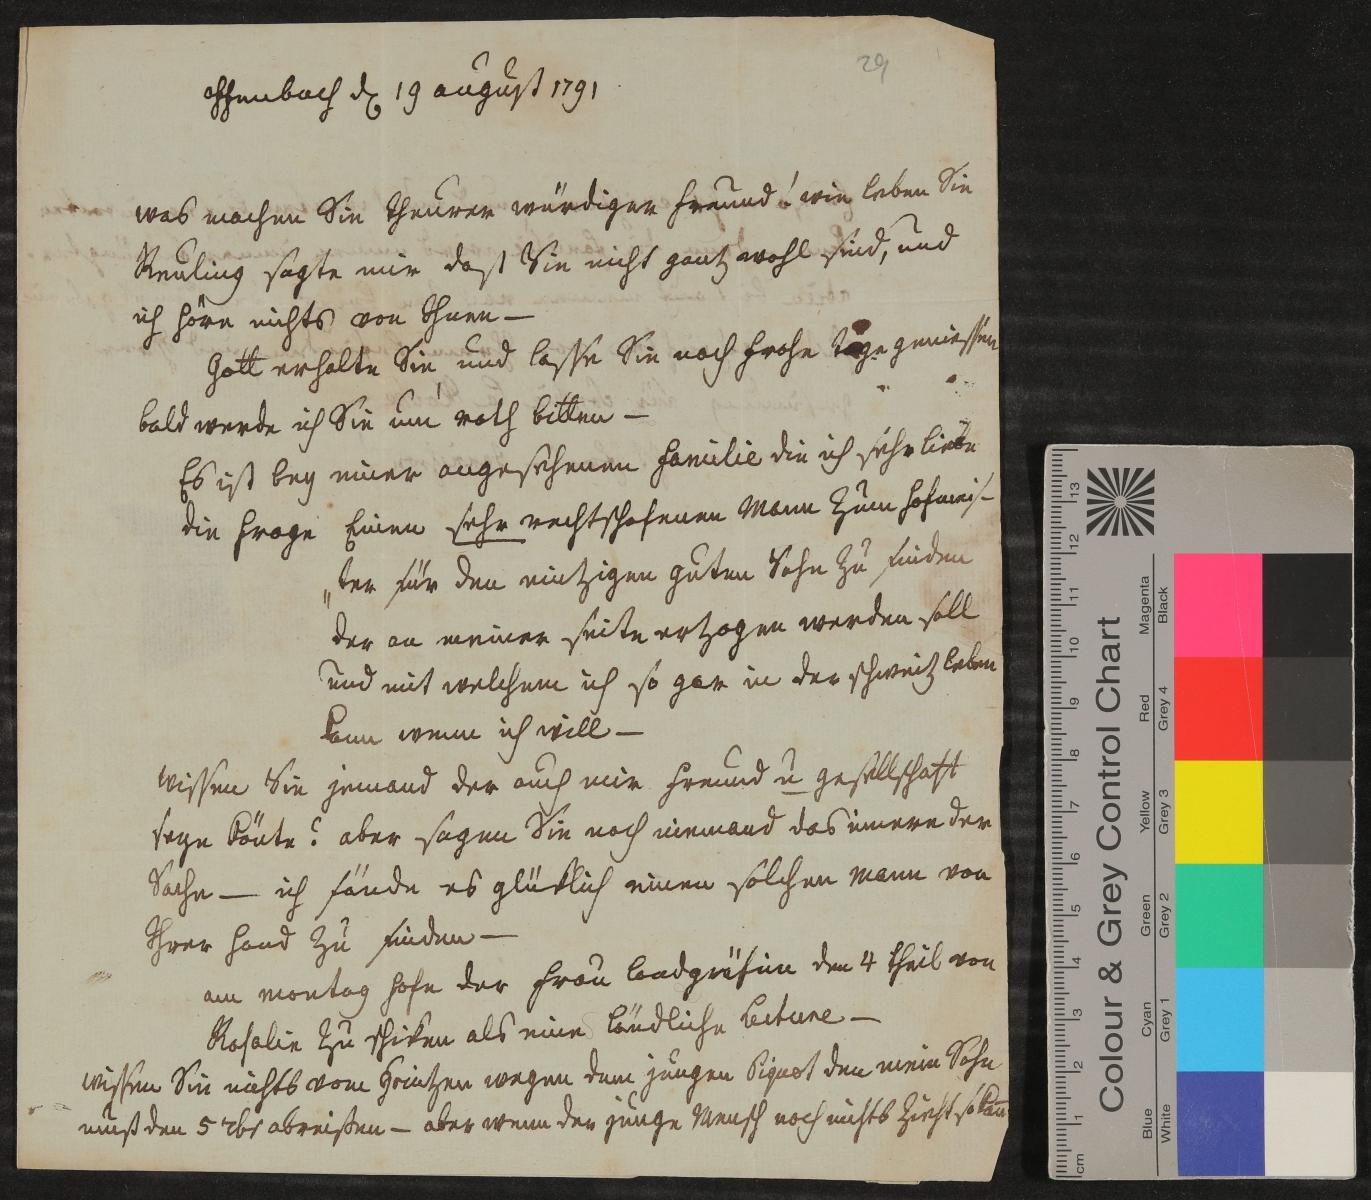 29
offenbach d 19 august 1791
was machen Sie theurer würdiger Freund! wie leben Sie
Reuling sagte mir daß Sie nicht gantz wohl sind, und
ich höre nichts von Ihnen —
Gott erhalte Sie und lasse Sie noch frohe tage geniessen
bald werde ich Sie um rath bitten —
Es ist bey einer angesehenen Familie die ich sehr liebe
die Frage Einen sehr rechtschafenen Mann zum hofmeis-
„ter für den eintzigen guten Sohn zu finden
der an meiner seite ertzogen werden soll
und mit welchem ich so gar in der schweitz leben
kann wenn ich will —
wissen Sie jemand der auch mir Freund u gesellschaft
seyn könte? aber sagen Sie noch niemand das innere der
Sache — ich fände es glüklich einen solchen Mann von
Ihrer hand zu finden —
am montag hofe der Frau landgräfin den 4 theil von
Rosalie zu schiken als eine ländliche lecture —
wissen Sie nichts vom Printzen wegen dem jungen Piquet den mein Sohn
muß den 5 7br abreißen — aber wenn der junge Mensch noch nichts zieht so kan
Colour & Grey Control Chart
Blue Cyan Green Yellow Red Magenta
White Grey 1 Grey 2 Grey 3 Grey 4 Black
cm 1 2 3 4 5 6 7 8 9 10 11 12 13